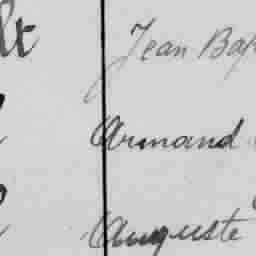 lt Jean Bap
Armand
Auguste